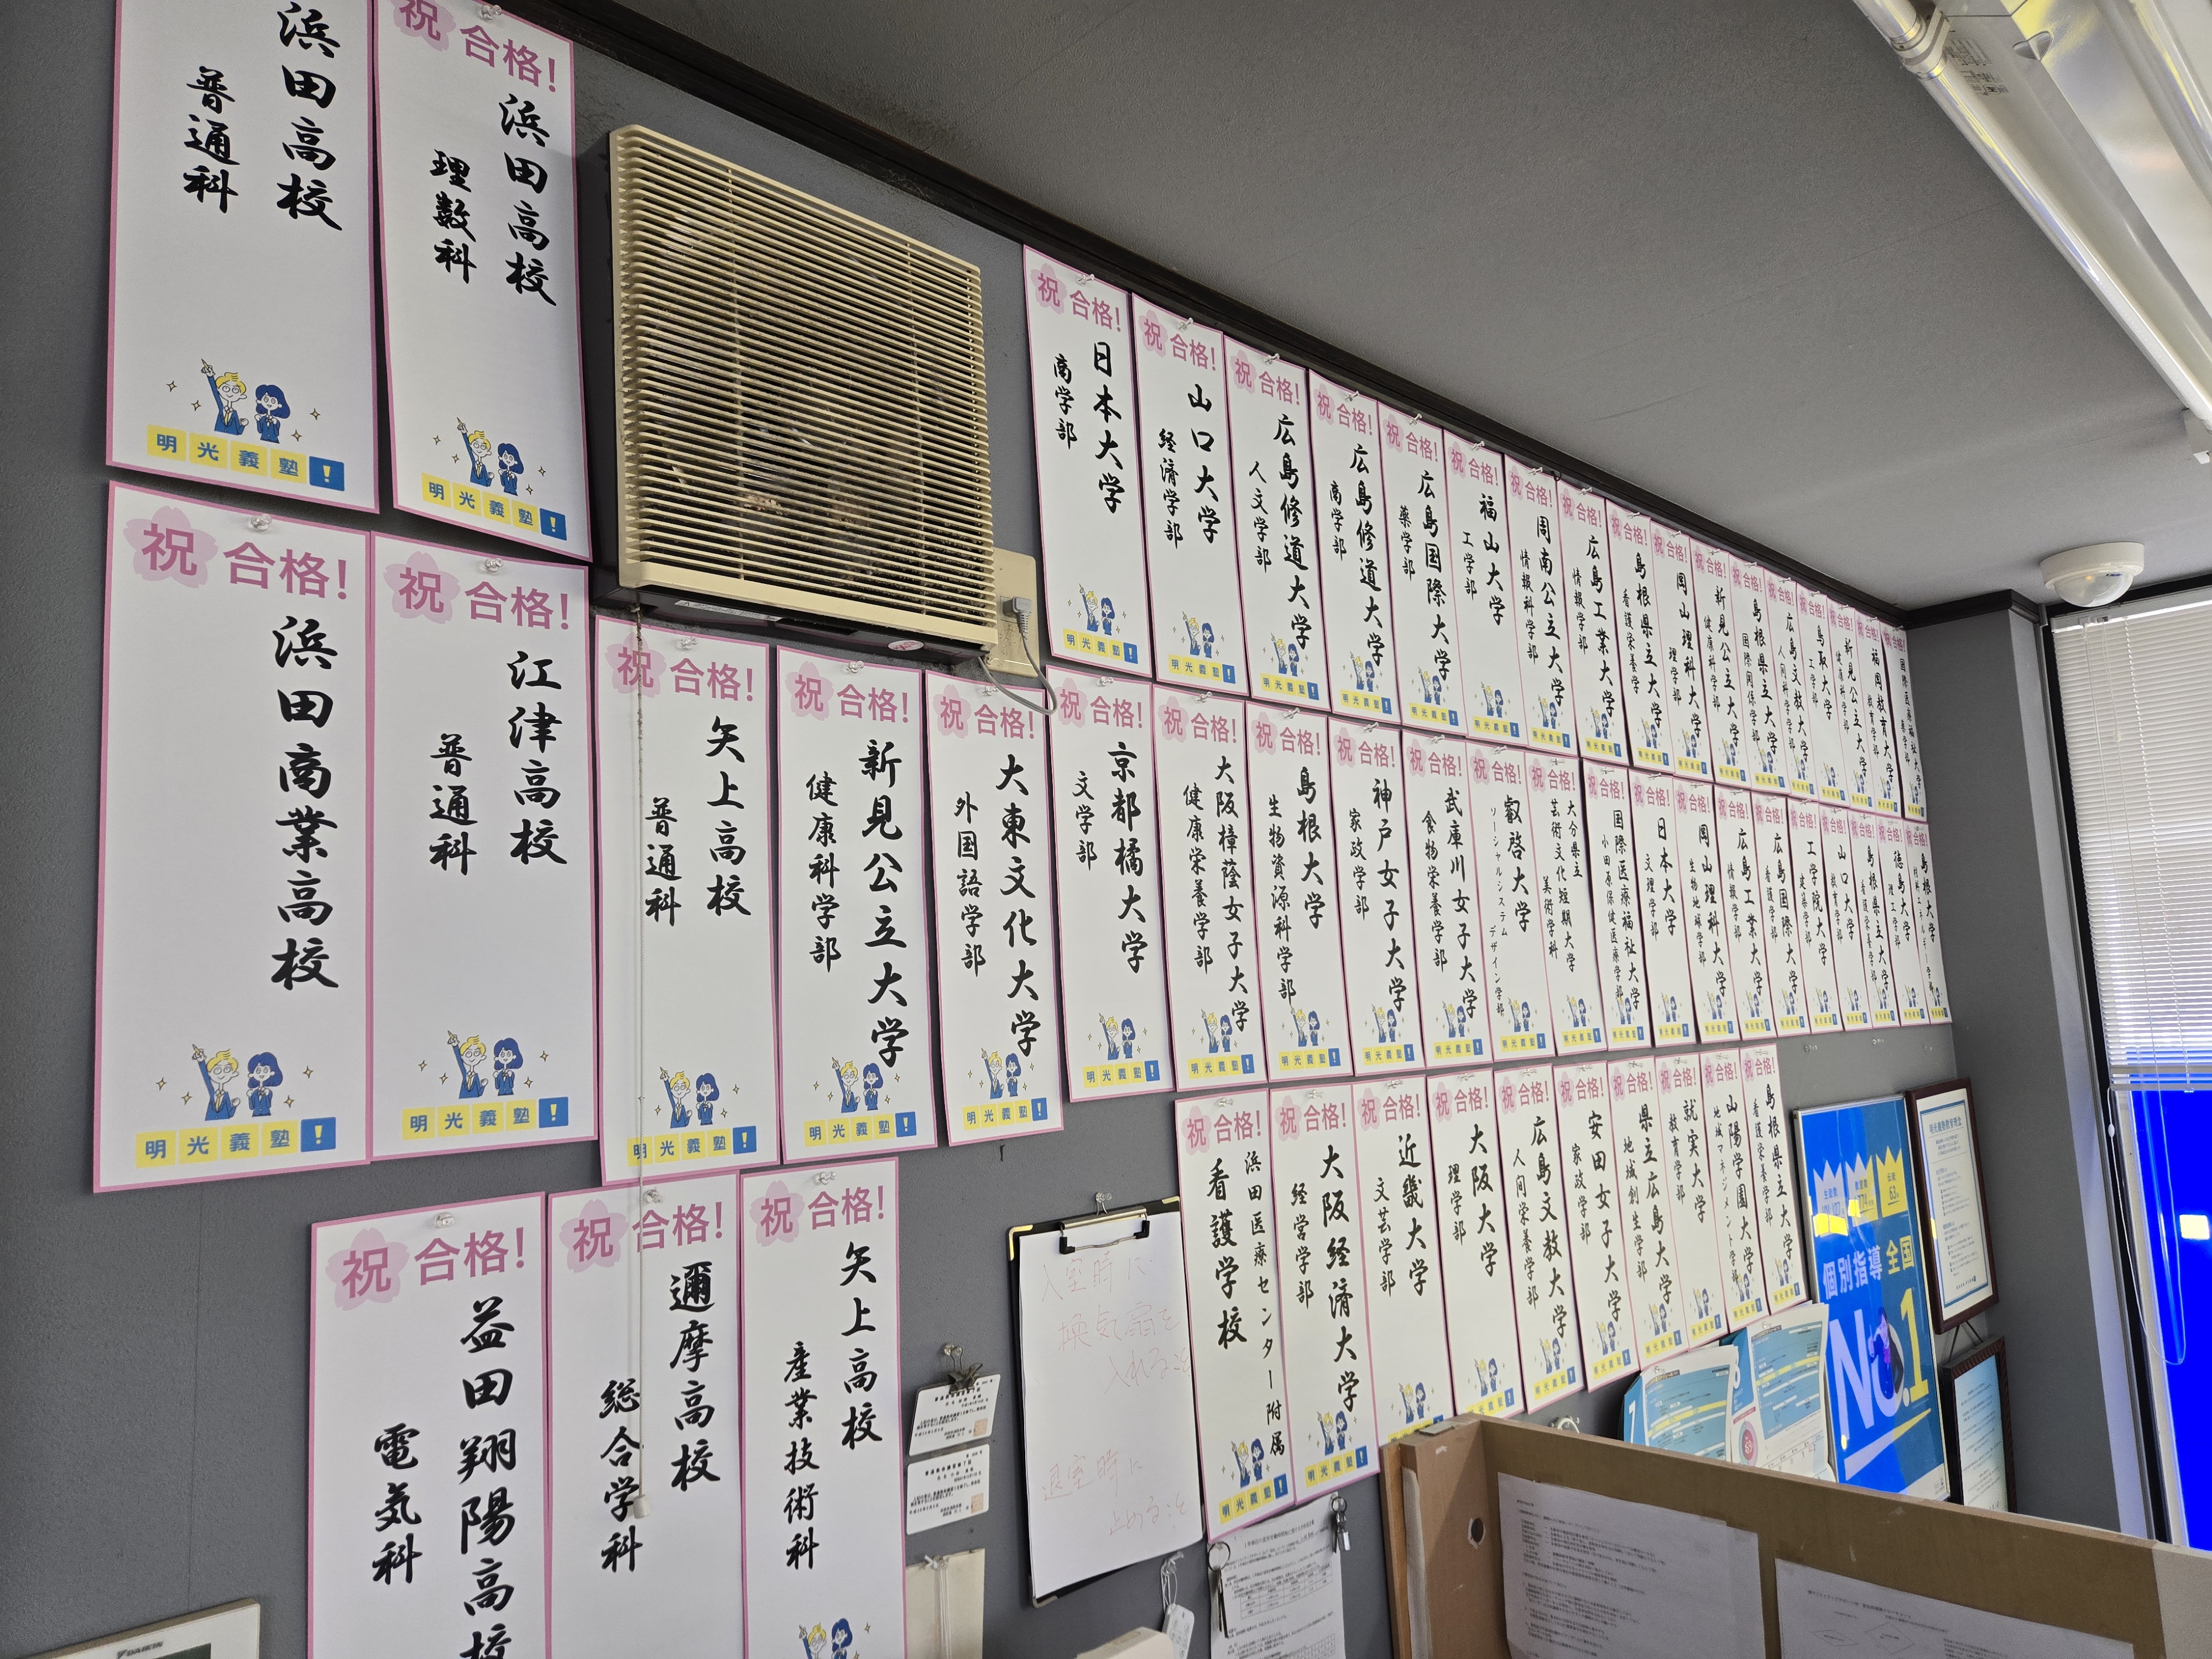 浜田高校
普通科
明光義塾!
祝 合格!
浜田高校
理数科
明光義塾!
祝 合格!
日本大学
商学部
明光義塾!
祝 合格!
山口大学
経済学部
明光義塾!
祝 合格!
広島修道大学
人文学部
明光義塾!
祝 合格!
広島修道大学
商学部
明光義塾!
祝 合格!
広島国際大学
薬学部
明光義塾!
祝 合格!
福山大学
工学部
明光義塾!
祝 合格!
周南公立大学
情報科学部
明光義塾!
祝 合格!
広島工業大学
情報学部
明光義塾!
祝 合格!
島根県立大学
看護栄養学
祝 合格!
岡山理科大学
理学部
祝 合格!
新見公立大学
健康科学部
祝 合格!
島根県立大学
国際関係学部
祝 合格!
広島文教大学
人間科学部
祝 合格!
鳥取大学
工学部
祝 合格!
新見公立大学
健康科学部
祝 合格!
福岡教育大学
教育学部
祝 合格!
国際医療福祉大学
祝 合格!
浜田商業高校
明光義塾!
祝 合格!
江津高校
普通科
明光義塾!
祝 合格!
矢上高校
普通科
明光義塾!
祝 合格!
新見公立大学
健康科学部
明光義塾!
祝 合格!
大東文化大学
外国語学部
明光義塾!
祝 合格!
京都橘大学
文学部
明光義塾!
祝 合格!
大阪樟蔭女子大学
健康栄養学部
明光義塾!
祝 合格!
島根大学
生物資源科学部
明光義塾!
祝 合格!
神戸女子大学
家政学部
明光義塾!
祝 合格!
武庫川女子大学
食物栄養学部
明光義塾!
祝 合格!
叡啓大学
ソーシャルシステム デザイン学部
明光義塾!
祝 合格!
大分県立
芸術文化短期大学
美術学科
祝 合格!
国際医療福祉大学
小田原保健医療学部
祝 合格!
日本大学
文理学部
祝 合格!
岡山理科大学
生物地球学部
祝 合格!
広島工業大学
情報学部
祝 合格!
広島国際大学
看護学部
祝 合格!
工学院大学
建築学部
祝 合格!
山口大学
教育学部
祝 合格!
島根県立大学
看護栄養学部
祝 合格!
徳島大学
理工学部
祝 合格!
島根大学
材料エネルギー学部
祝 合格!
益田翔陽高校
電気科
祝 合格!
邇摩高校
総合学科
祝 合格!
矢上高校
産業技術科
入室時に
換気扇を
入れること
退室時に
止めること
祝 合格!
浜田医療センター附属
看護学校
明光義塾!
祝 合格!
大阪経済大学
経営学部
明光義塾!
祝 合格!
近畿大学
文芸学部
明光義塾!
祝 合格!
大阪大学
理学部
明光義塾!
祝 合格!
広島文教大学
人間栄養学部
明光義塾!
祝 合格!
安田女子大学
家政学部
明光義塾!
祝 合格!
県立広島大学
地域創生学部
祝 合格!
就実大学
教育学部
祝 合格!
山陽学園大学
地域マネジメント学部
祝 合格!
島根県立大学
看護栄養学部
個別指導 全国
No.1
DAIKIN